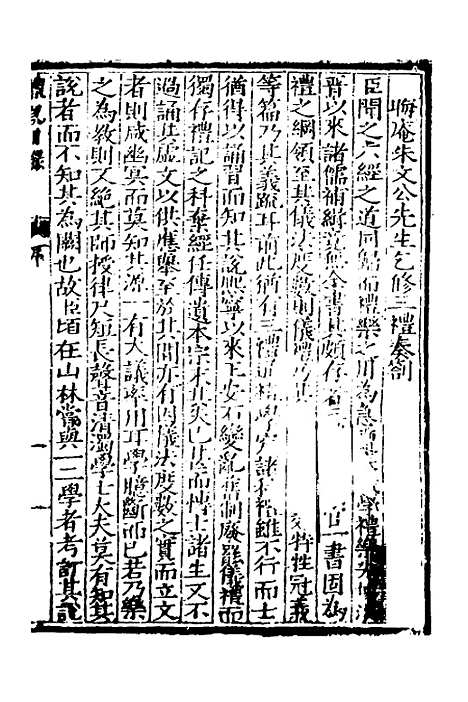 晦庵朱文公先生乞修三禮奏劄
臣聞之六經之道同歸而禮樂之用為急遭學禮樂先壞漢
晉以來諸儒補緝竟無全書其頗存者三官一書固為
禮之綱領至其儀法度數則儀禮乃其郊特牲冠義
等篇乃其義疏耳前此猶有三禮通禮學究諸科禮雖不行而士
猶得以誦習而知其說熙寧以來王安石變亂舊制廢罷儀禮而
獨存禮記之科棄經任傳遺本宗末其失已甚而博士諸生又不
過誦其虛文以供應舉至於其間亦有因儀法度數之實而立文
者則咸幽冥而莫知其源一有大議率用耳學臆斷而已若乃樂
之為教則又絕無師授律尺短長聲音清濁學士大夫莫有知其
說者而不知其為闕也故臣頃在山林嘗與一二學者考訂其說
序
一